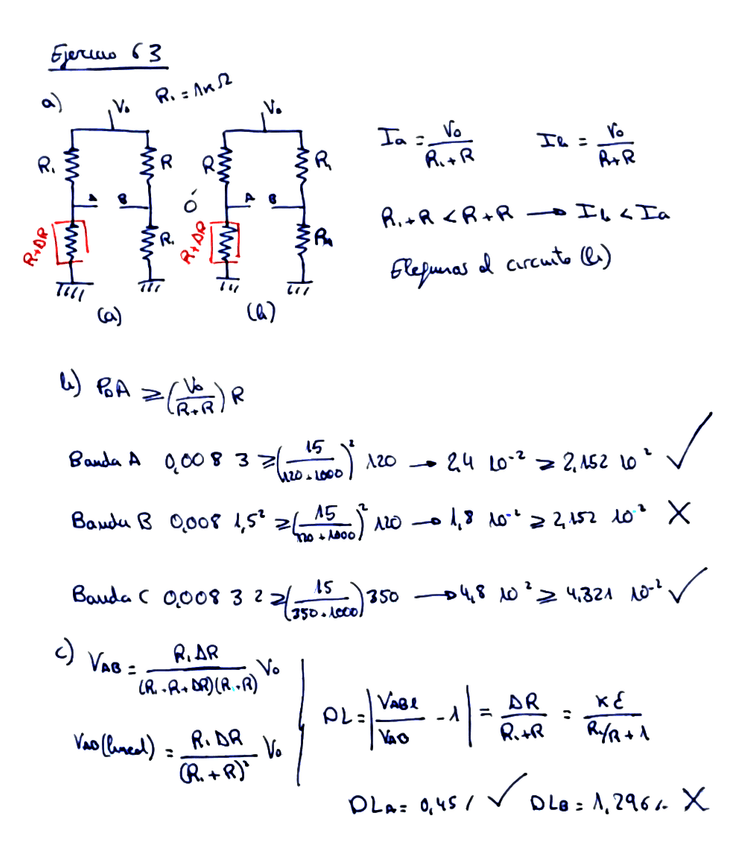 Ejercicio 63
a) R₁ = 1kΩ
V₀ V₀
R₁ R R R₁
A B ó A B
R+ΔR R₁ R+ΔR R₁
(a) (b)
Ia = V₀/(R₁+R) Ib = V₀/(R+R)
R₁+R < R+R → Ib < Ia
Elegimos el circuito (b)
b) P₀A ≥ (V₀/(R+R)) R
Banda A 0,008 3 ≥ (15/(120+1000))² 120 → 2,4 10⁻² ≥ 2,152 10² ✓
Banda B 0,008 1,5² ≥ (15/(120+1000))² 120 → 1,8 10⁻² ≥ 2,152 10² X
Banda C 0,008 3 2 ≥ (15/(350+1000)) 350 → 4,8 10² ≥ 4,321 10⁻² ✓
c) VAB = R₁ΔR/((R₁+R+ΔR)(R₁+R)) V₀
VAB(lineal) = R₁ΔR/(R₁+R)² V₀
DL = |VABl/VAB - 1| = ΔR/(R₁+R) = Kε/(R₁/R + 1)
DLA = 0,45% ✓ DLB = 1,296% X